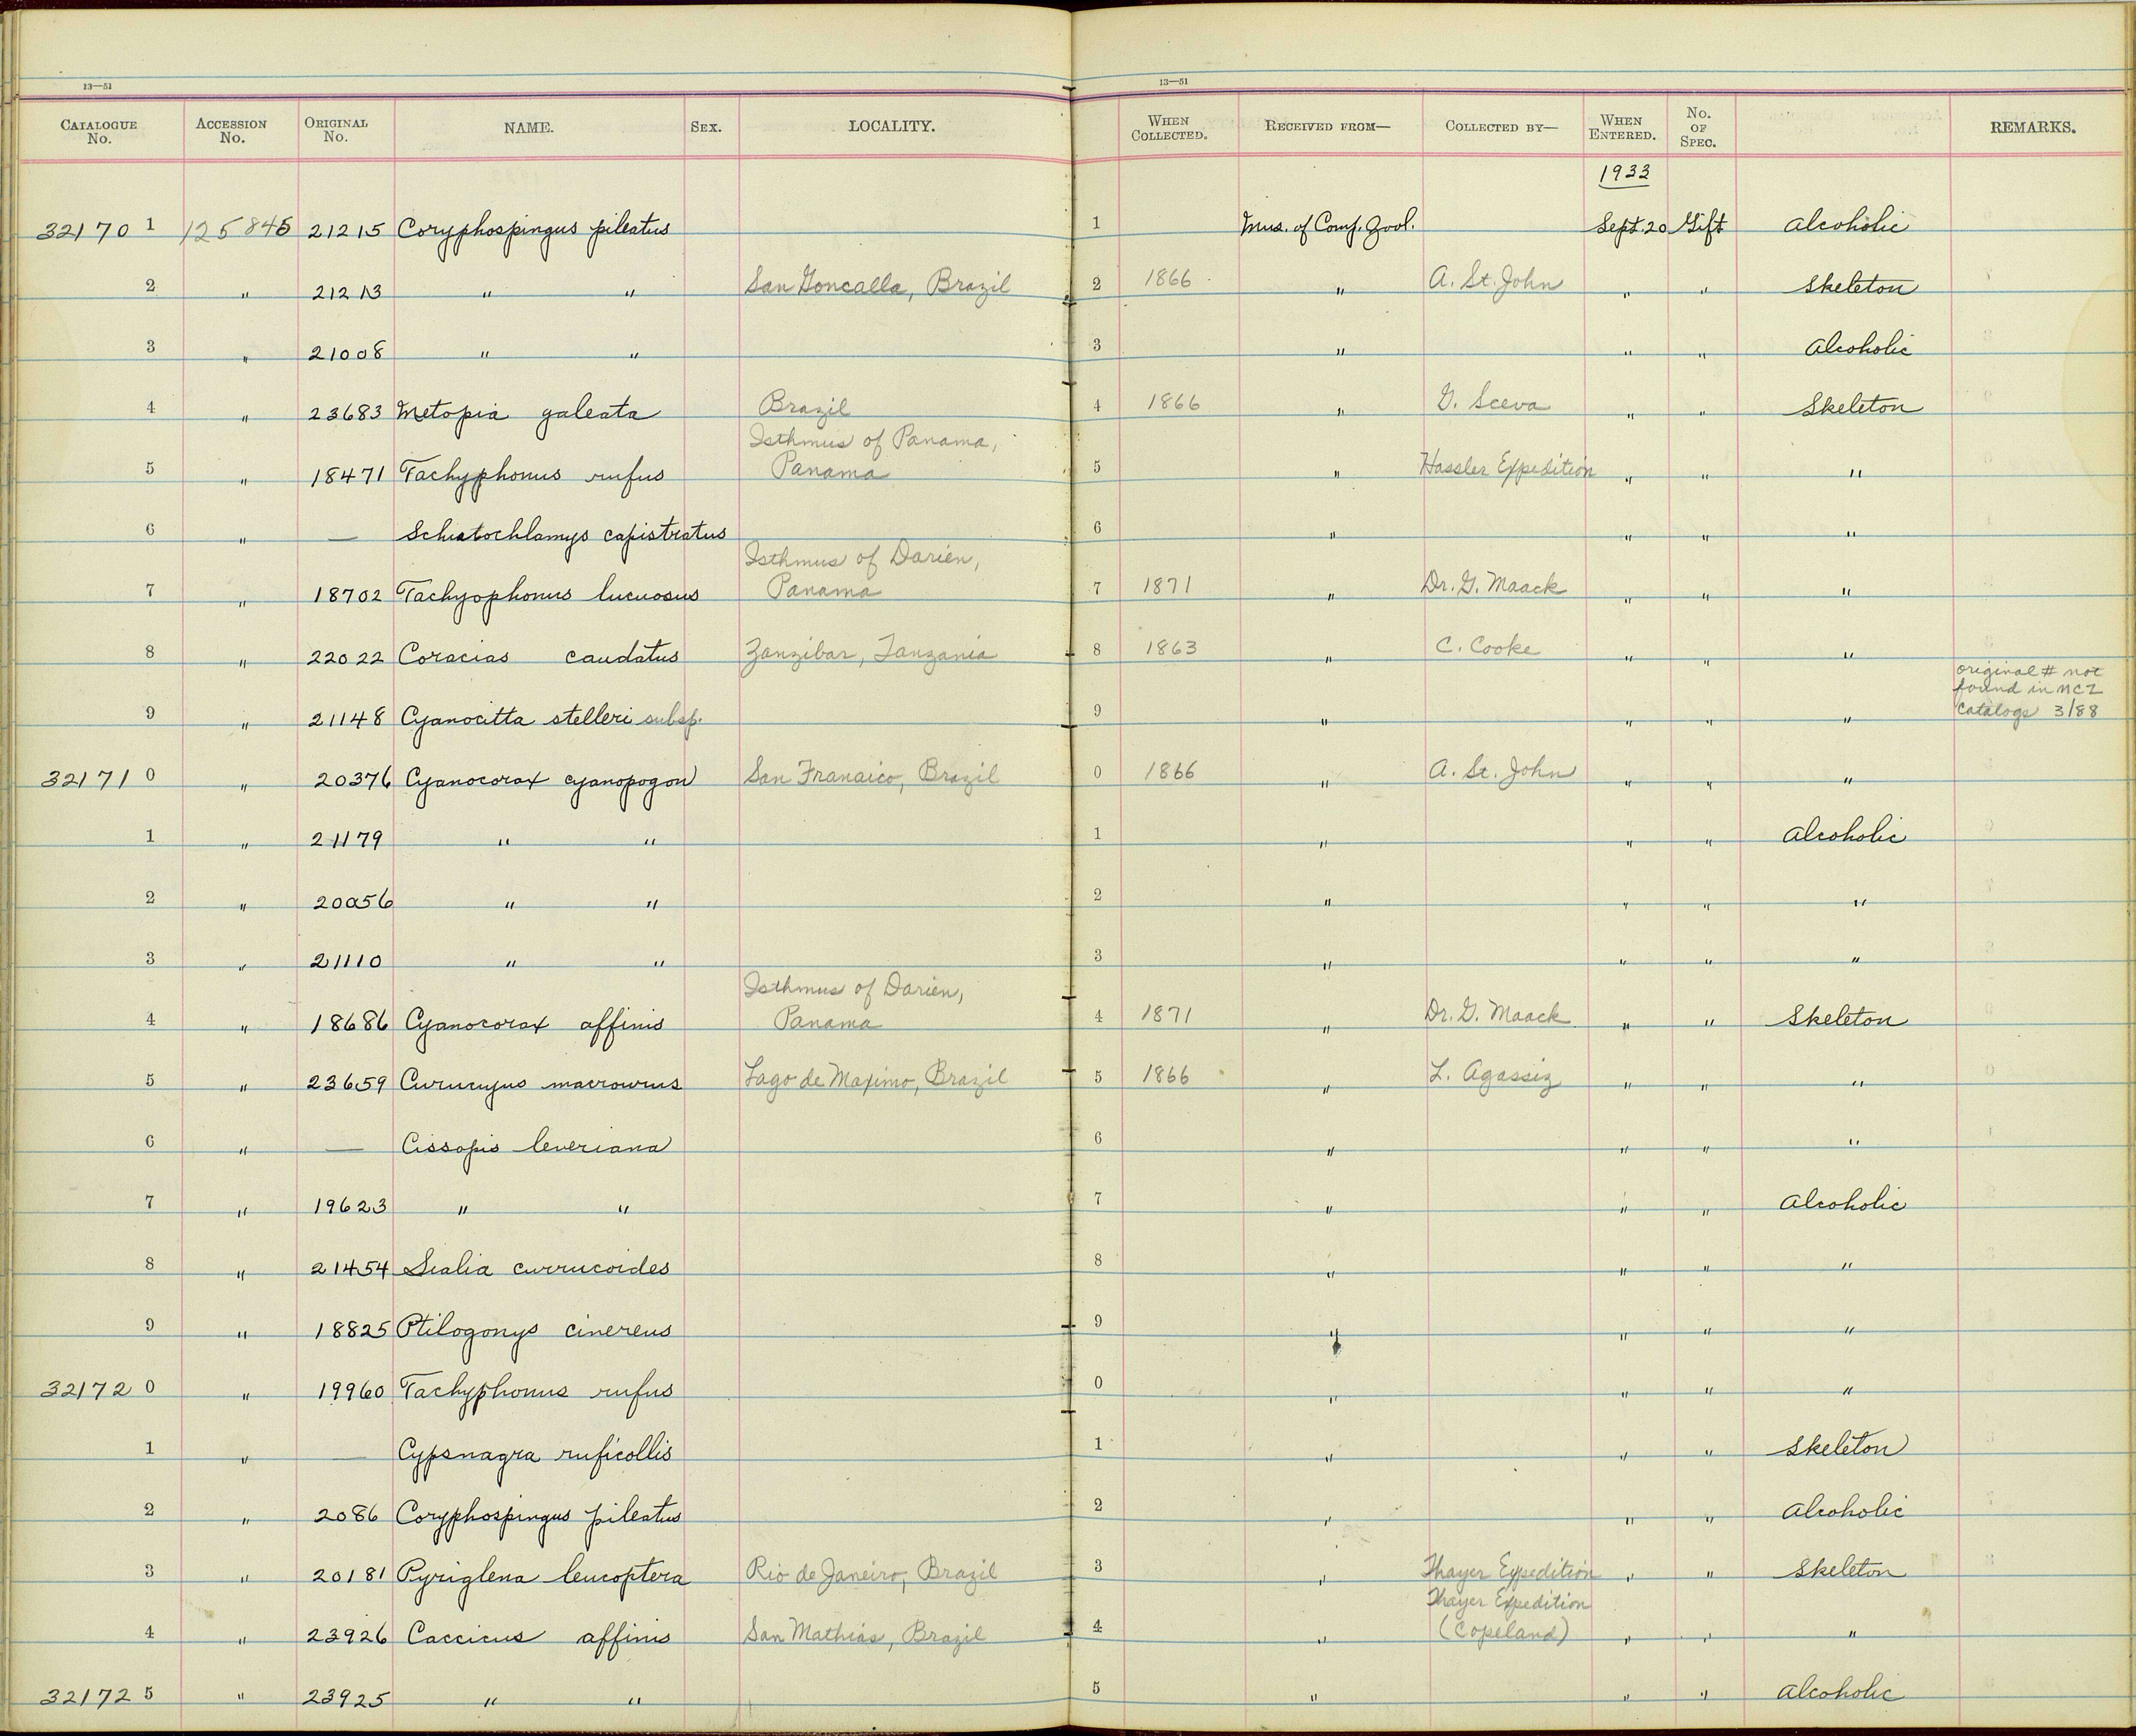 13—51 13—51
CATALOGUE No. ACCESSION No. ORIGINAL No. NAME. SEX. LOCALITY. WHEN COLLECTED. RECEIVED FROM— COLLECTED BY— WHEN ENTERED. No. OF SPEC. REMARKS.
1933
32170 1 125845 21215 Coryphospingus pileatus 1 Mus. of Comp. Zool. Sept. 20 Gift Alcoholic
2 " 21213 " " San Goncalla, Brazil 2 1866 " A. St. John " " Skeleton
3 " 21008 " " 3 " " " Alcoholic
4 " 23683 Metopia galeata Brazil 4 1866 " G. Sceva " " Skeleton
Isthmus of Panama,
5 " 18471 Tachyphonus rufus Panama 5 " Hassler Expedition " " "
6 " — Schistochlamys capistratus 6 " " " "
Isthmus of Darien,
7 " 18702 Tachyophonus lucuosus Panama 7 1871 " Dr. G. Maack " " "
8 " 22022 Coracias caudatus Zanzibar, Tanzania 8 1863 " C. Cooke " " "
original # not
found in MCZ
9 " 21148 Cyanocitta stelleri subsp. 9 " " " " catalogs 3/88
32171 0 " 20376 Cyanocorax cyanopogon San Franaico, Brazil 0 1866 " A. St. John " " "
1 " 21179 " " 1 " " " Alcoholic
2 " 20056 " " 2 " " " "
3 " 21110 " " 3 " " " "
Isthmus of Darien,
4 " 18686 Cyanocorax affinis Panama 4 1871 " Dr. G. Maack " " Skeleton
5 " 23659 Curucujus macrourus Lago de Maximo, Brazil 5 1866 " L. Agassiz " " "
6 " — Cissopis leveriana 6 " " " "
7 " 19623 " " 7 " " " Alcoholic
8 " 21454 Sialia currucoides 8 " " " "
9 " 18825 Ptilogonys cinereus 9 " " " "
32172 0 " 19960 Tachyphonus rufus 0 " " " "
1 " — Cypsnagra ruficollis 1 " " " Skeleton
2 " 2086 Coryphospingus pileatus 2 " " " Alcoholic
3 " 20181 Pyriglena leucoptera Rio de Janeiro, Brazil 3 " Thayer Expedition " " Skeleton
Thayer Expedition
4 " 23926 Caccicus affinis San Mathias, Brazil 4 " (Copeland) " " "
32172 5 " 23925 " " 5 " " " Alcoholic